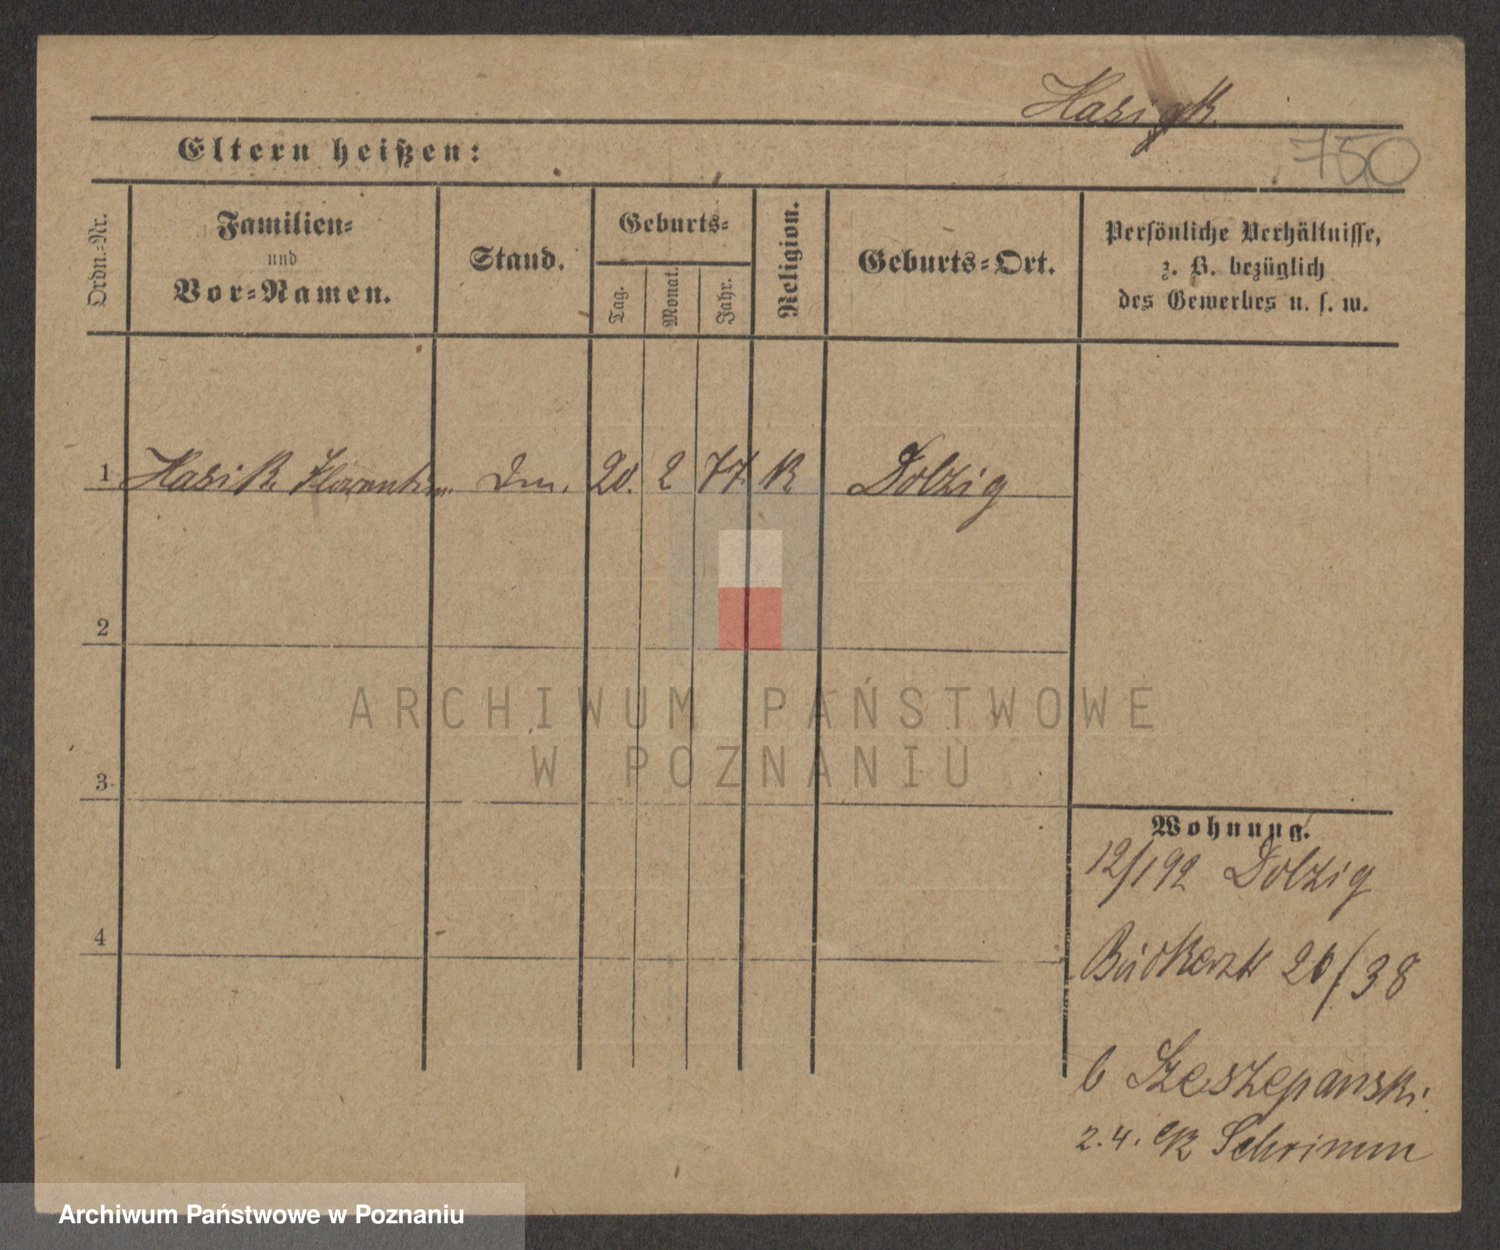 Hasigk
750
Eltern heißen:
Ordn.-Nr.
Familien-
und
Vor-Namen.
Stand.
Geburts-
Tag.
Monat.
Jahr.
Religion.
Geburts-Ort.
Persönliche Verhältnisse,
z. B. bezüglich
des Gewerbes u. s. w.
1 Hasik Florentin 20. 2 77. K Dolzig
2
3
4
Wohnung.
12/192 Dolzig
20/38
b Szeszepanski.
2.4. Schrimm
ARCHIWUM PAŃSTWOWE
W POZNANIU
Archiwum Państwowe w Poznaniu